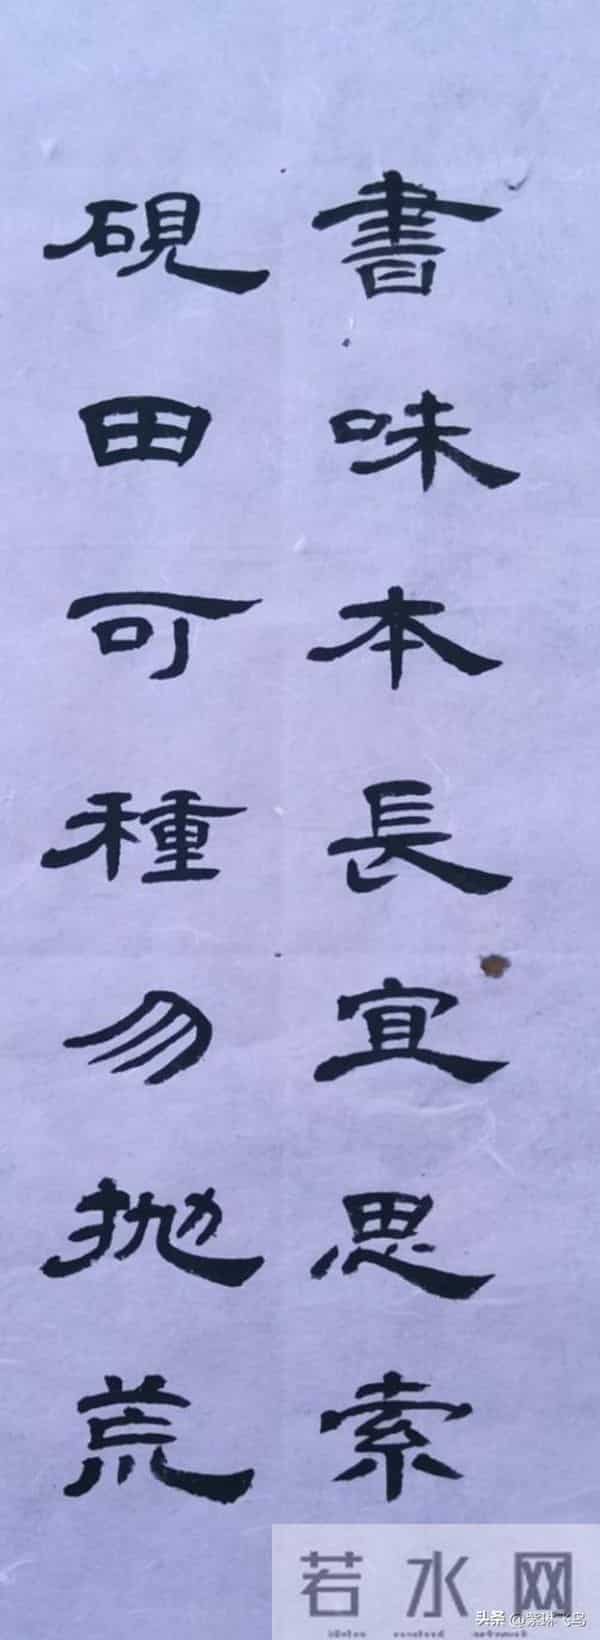 書味本長宜思索
硯田可種勿抛荒
若水网
头条 @紫琳飞鸟